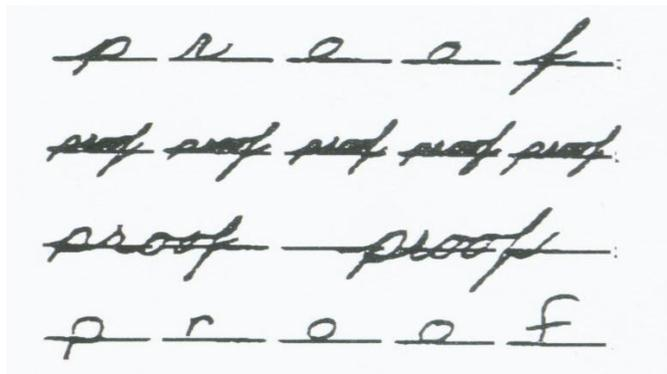 p r o o f
proof proof proof proof proof
proof proof
p r o o f